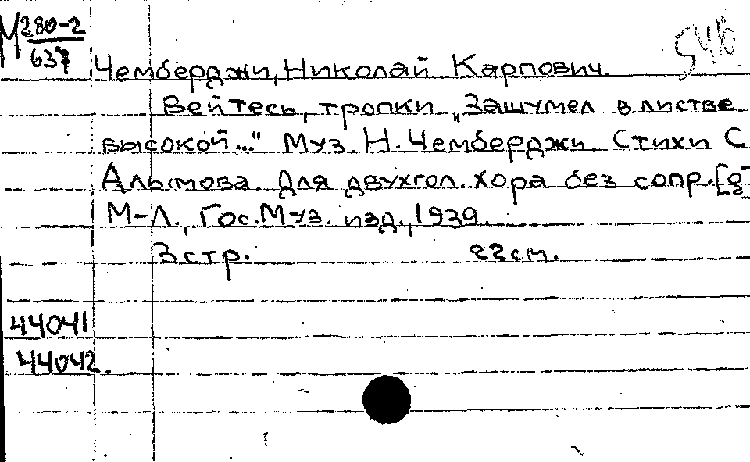 М 280-2
637
546
Чемберджи, Николай Карпович.
Вейтесь, тропки „Зашумел в листве
высокой..." Муз. Н. Чемберджи Стихи С
Алымова. Для двухгол. хора без сопр. [g-
М-Л., Гос. Муз. изд., 1939.
3 стр. 22 см.
44041
44042.